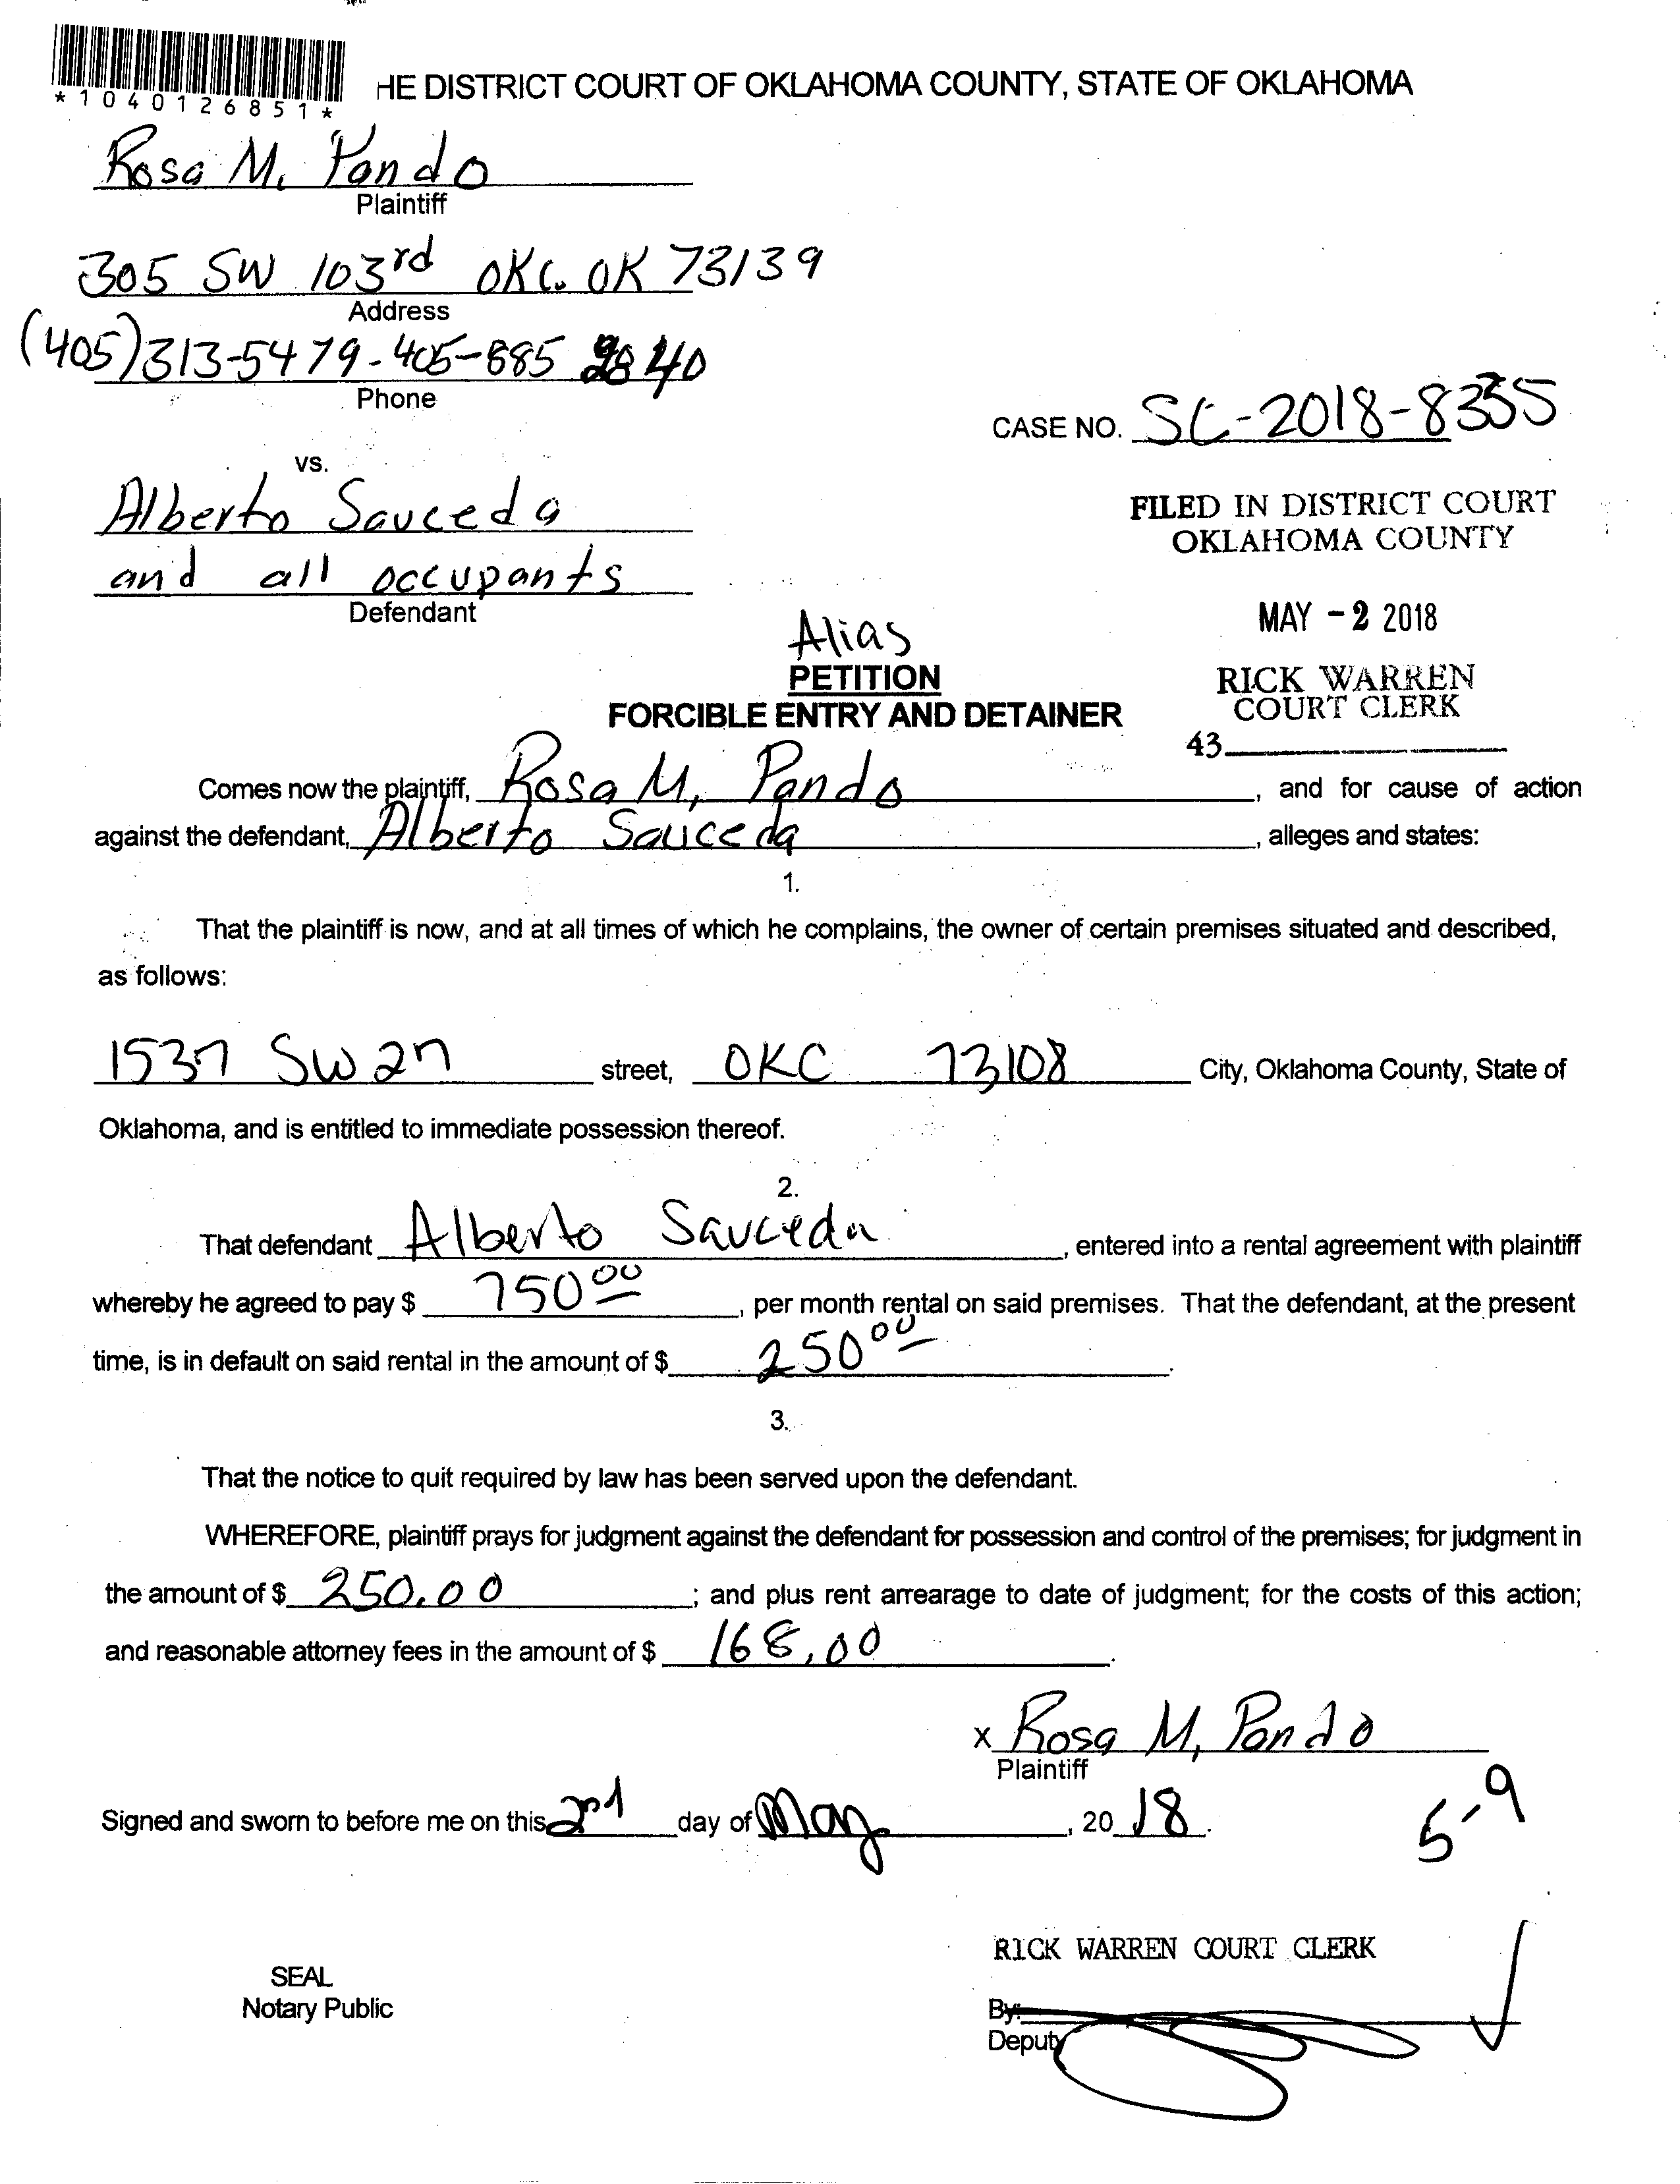 *1040126851*
HE DISTRICT COURT OF OKLAHOMA COUNTY, STATE OF OKLAHOMA
Rosa M. Pando
Plaintiff
305 SW 103rd OKC. OK 73139
Address
(405)313-5479-405-885 2840
Phone
CASE NO. SC-2018-8335
vs.
Alberto Sauceda
and all occupants
Defendant
FILED IN DISTRICT COURT
OKLAHOMA COUNTY
MAY -2 2018
RICK WARREN
COURT CLERK
43
Alias
PETITION
FORCIBLE ENTRY AND DETAINER
Comes now the plaintiff, Rosa M. Pando, and for cause of action
against the defendant, Alberto Sauceda, alleges and states:
1.
That the plaintiff is now, and at all times of which he complains, the owner of certain premises situated and described,
as follows:
1537 SW 27 street, OKC 73108 City, Oklahoma County, State of
Oklahoma, and is entitled to immediate possession thereof.
2.
That defendant Alberto Sauceda, entered into a rental agreement with plaintiff
whereby he agreed to pay $ 750 00, per month rental on said premises. That the defendant, at the present
time, is in default on said rental in the amount of $ 250 00.
3.
That the notice to quit required by law has been served upon the defendant.
WHEREFORE, plaintiff prays for judgment against the defendant for possession and control of the premises; for judgment in
the amount of $ 250.00; and plus rent arrearage to date of judgment; for the costs of this action;
and reasonable attorney fees in the amount of $ 168.00.
x Rosa M. Pando
Plaintiff
Signed and sworn to before me on this 2nd day of May, 2018.
5-9
RICK WARREN COURT CLERK
SEAL
Notary Public
By:
Deputy